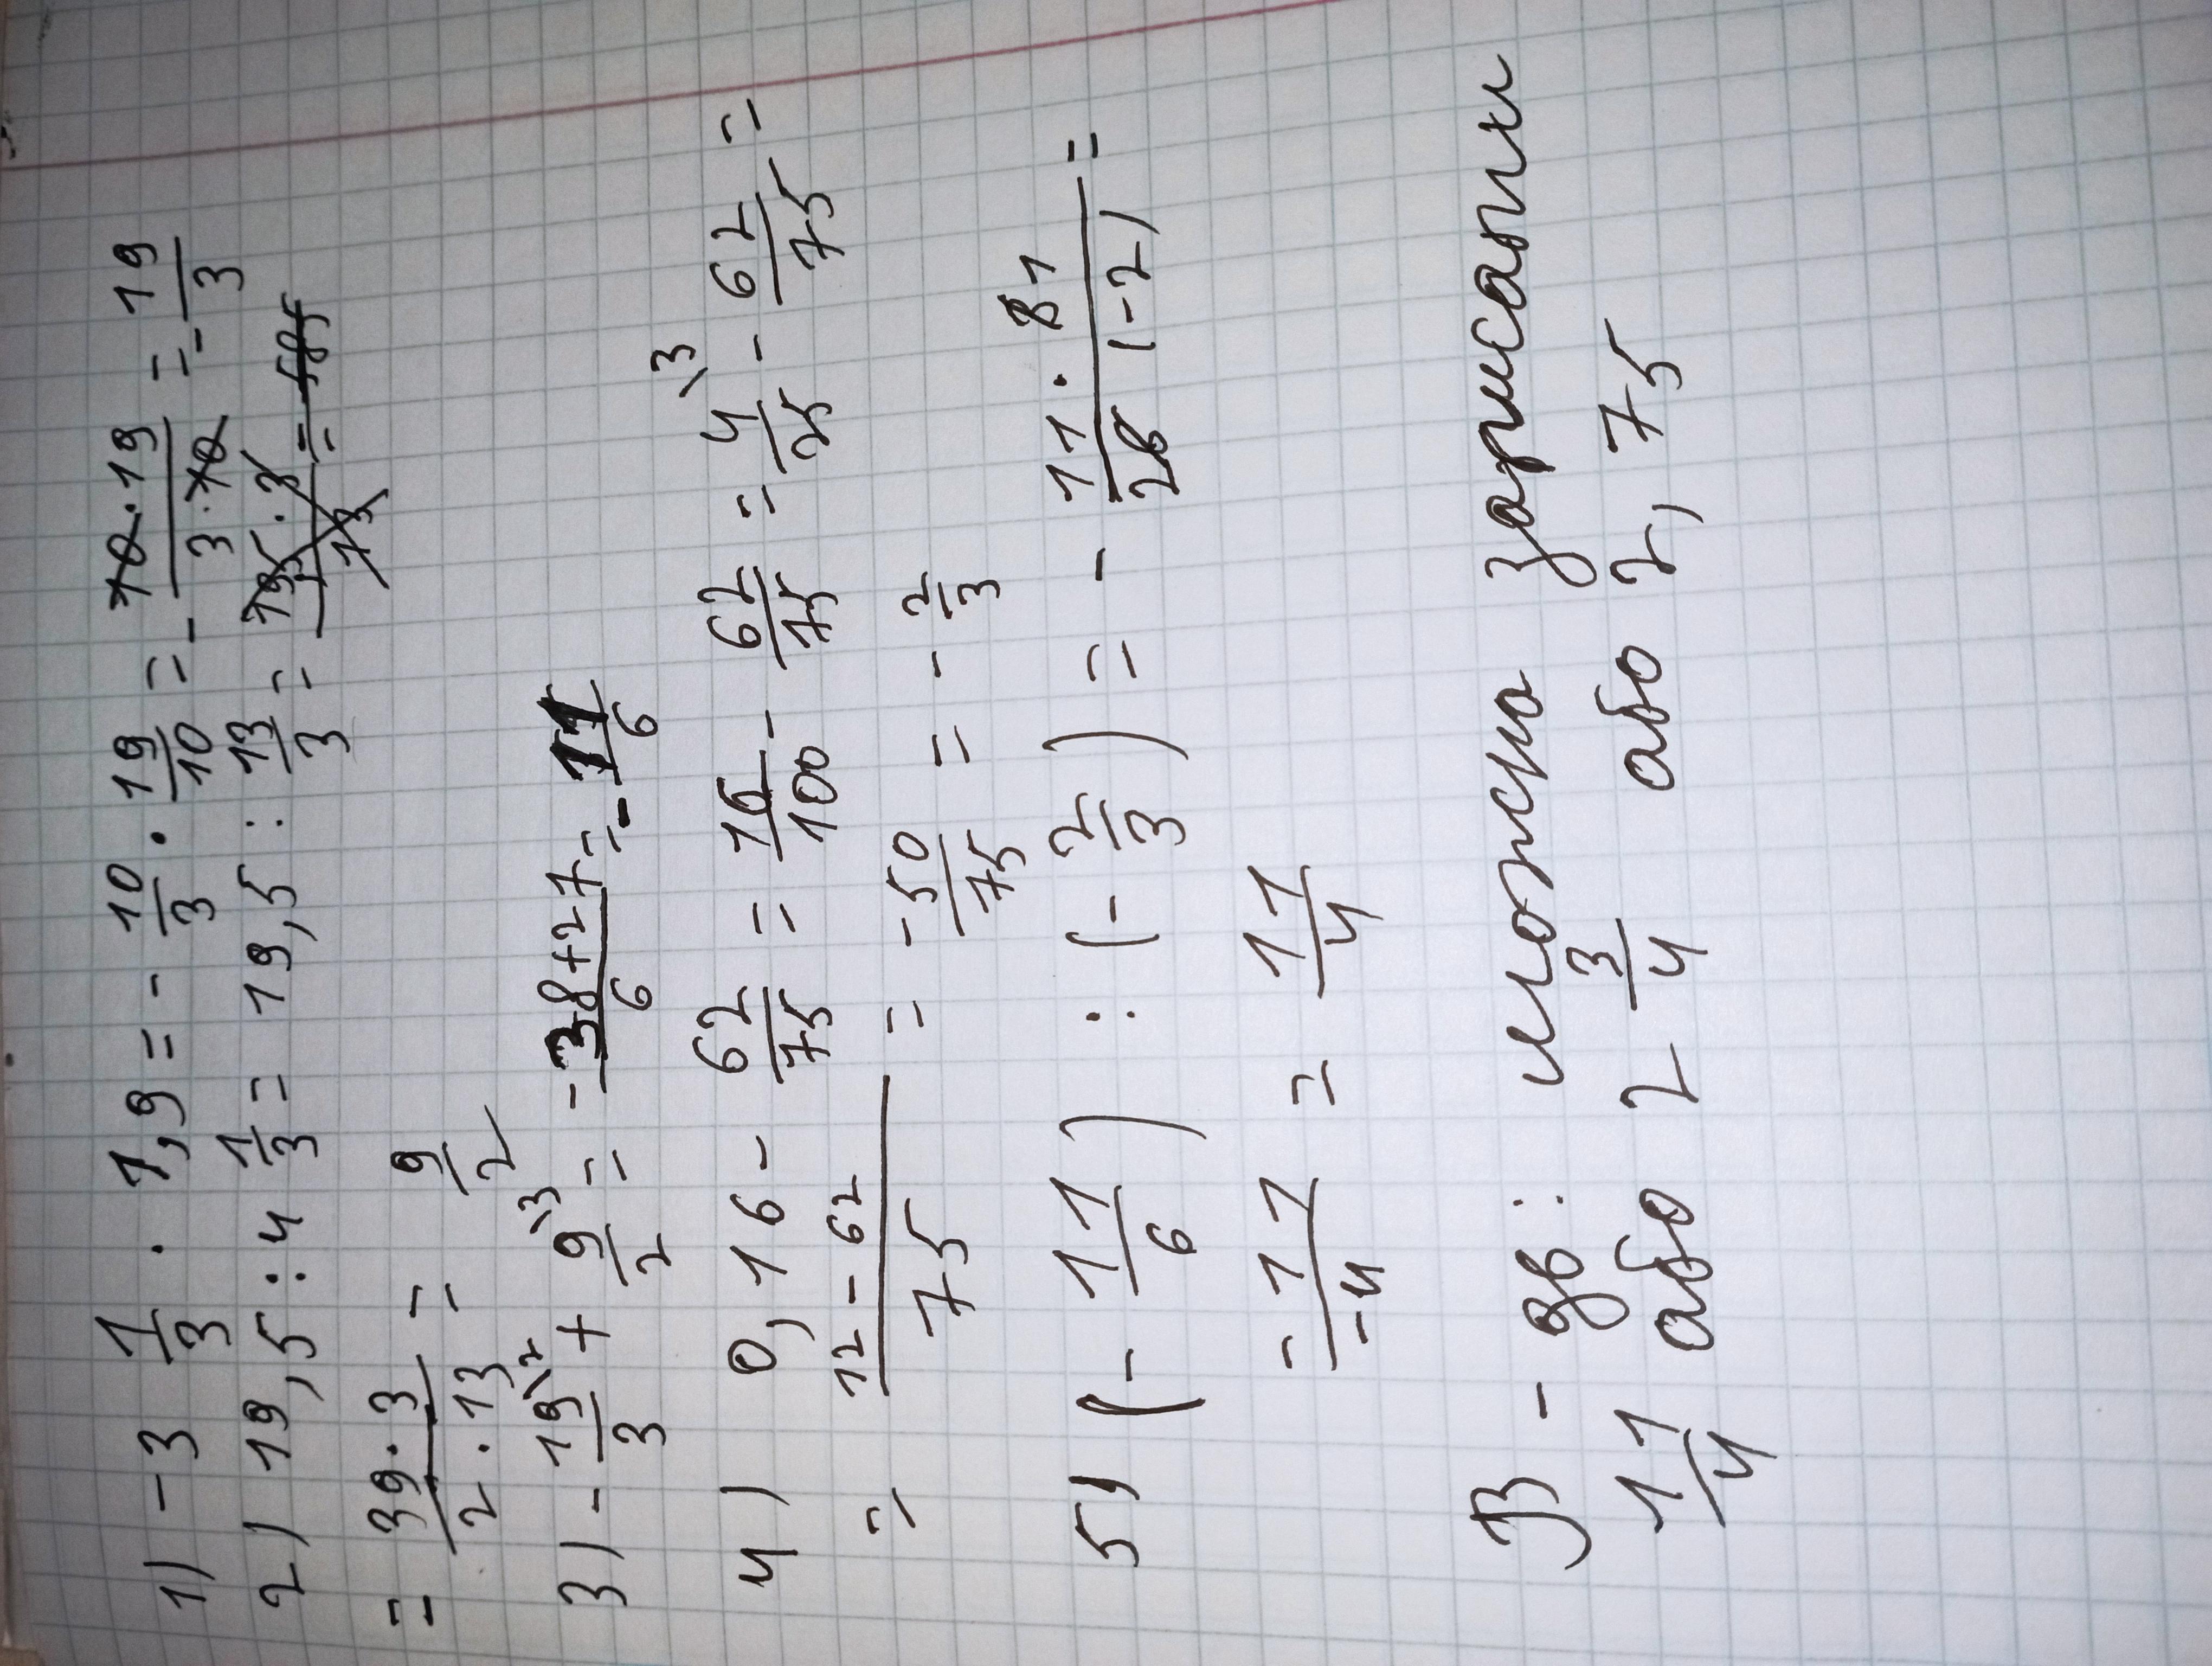 1) -3 1/3 · 1,9 = - 10/3 · 19/10 = - 10·19/3·10 = - 19/3
2) 19,5 : 4 1/3 = 19,5 : 13/3 = 195·3/13 = 585
= 39·3/2·13 = 9/2
3) - 19\2/3 + 9\3/2 = -38+27/6 = - 11/6
4) 0,16 - 62/75 = 16/100 - 62/75 = 4\3/25 - 62/75 =
= 12-62/75 = -50/75 = - 2/3
5) (- 11/6) : (- 2/3) = - 11·31/26(-2) =
-11/-4 = 11/4
В-дь: можна записати
11/4 або 2 3/4 або 2,75